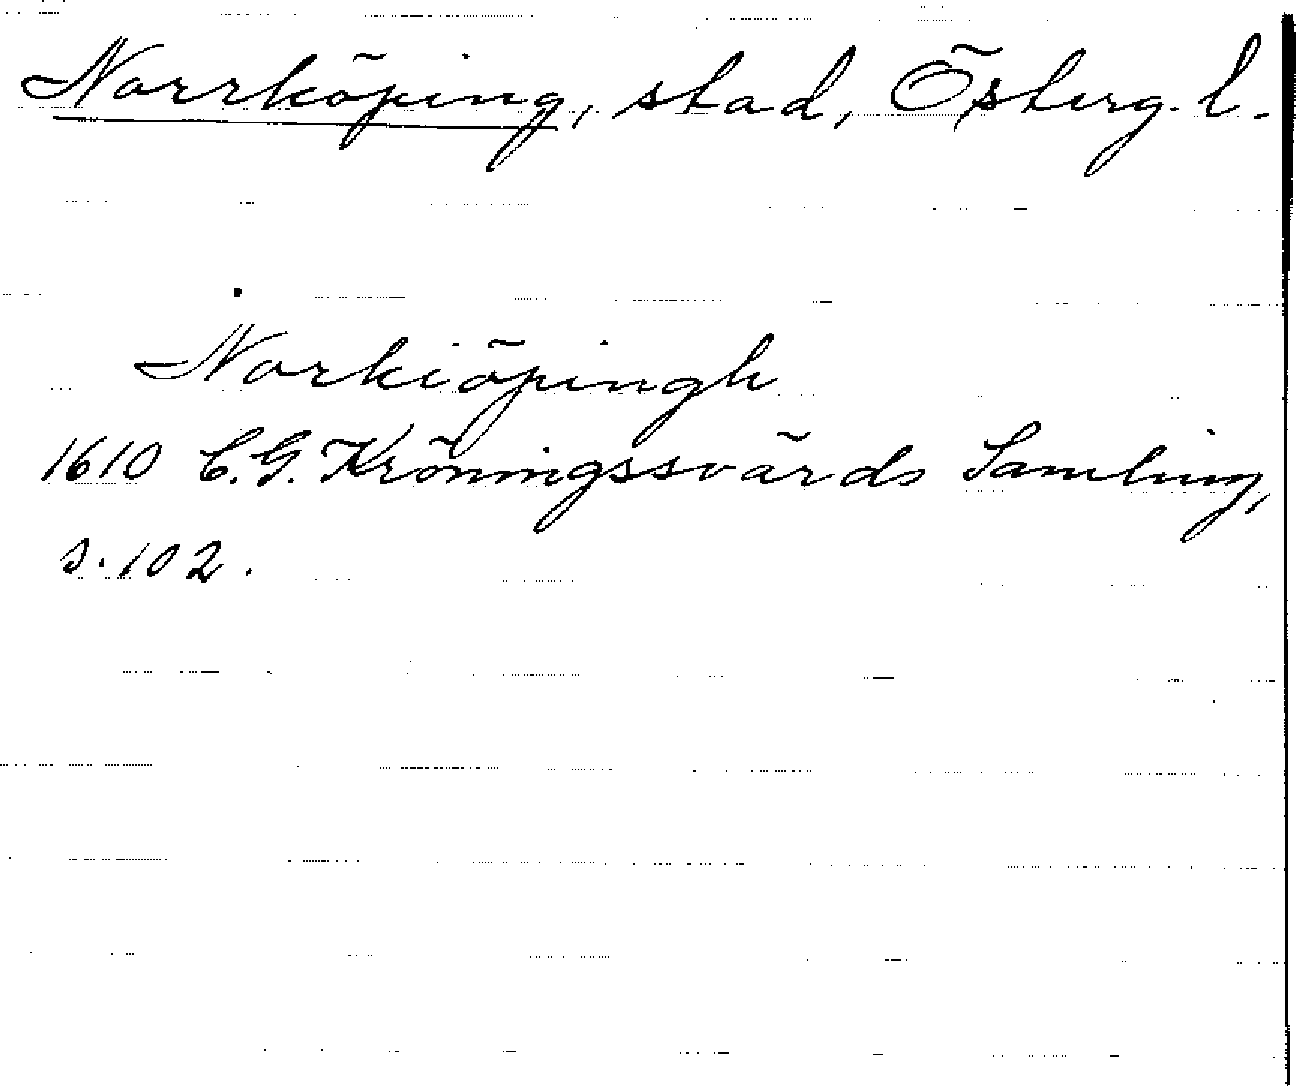 Norrköping, stad, Österg. l.
Norkiöpingh
1610 C.G. Kröningssvärds Samling,
s. 102.